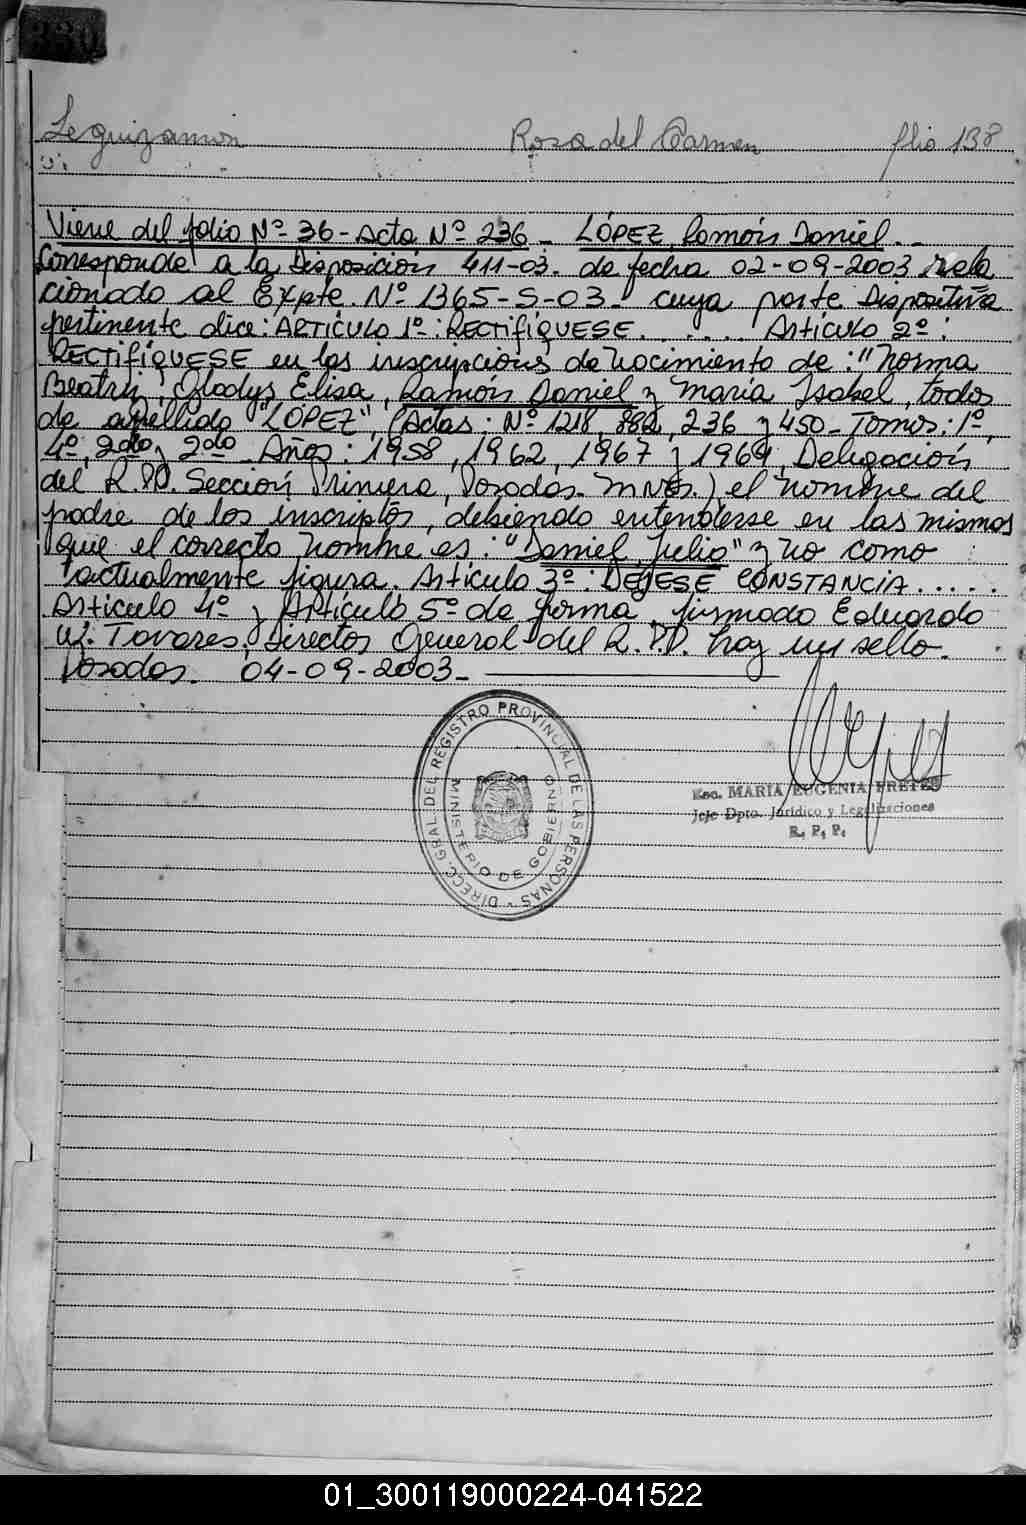 Leguizamon Rosa del Carmen flio 138
Viene del folio Nº 36 - Acta Nº 236 - LÓPEZ, Ramón Daniel. -
Corresponde a la Disposición 411-03. de fecha 02-09-2003 rela
cionado al Expte. Nº 1365-S-03- cuya parte Dispositiva
pertinente dice: ARTÍCULO 1º: RECTIFÍQUESE........ Artículo 2º:
RECTIFÍQUESE en las inscripciones de nacimiento de: "Norma
Beatriz, Gladys Elisa, Ramón Daniel y María Isabel, todos
de apellido "LÓPEZ", (Actas: Nº 1218, 882, 236 y 450 - Tomos: 1º,
4º, 2do y 2do Años: 1958, 1962, 1967 y 1969, Delegación
del R.P.P. Sección Primera, Posadas. Mnes.) el nombre del
padre de los inscriptos, debiendo entenderse en las mismas
que el correcto nombre es: "Daniel Julio" y no como
actualmente figura. Artículo 3º: DÉJESE CONSTANCIA.....
Artículo 4º y Artículo 5º de forma, firmado Eduardo
W. Tavares, Director General del R.P.P. hay un sello.
Posadas. 04-09-2003-
DIRECC. GRAL. DEL REGISTRO PROVINCIAL DE LAS PERSONAS -
MINISTERIO DE GOBIERNO
Esc. MARIA EUGENIA FRETES
Jefe Dpto. Jurídico y Legalizaciones
R. P. P.
01_300119000224-041522